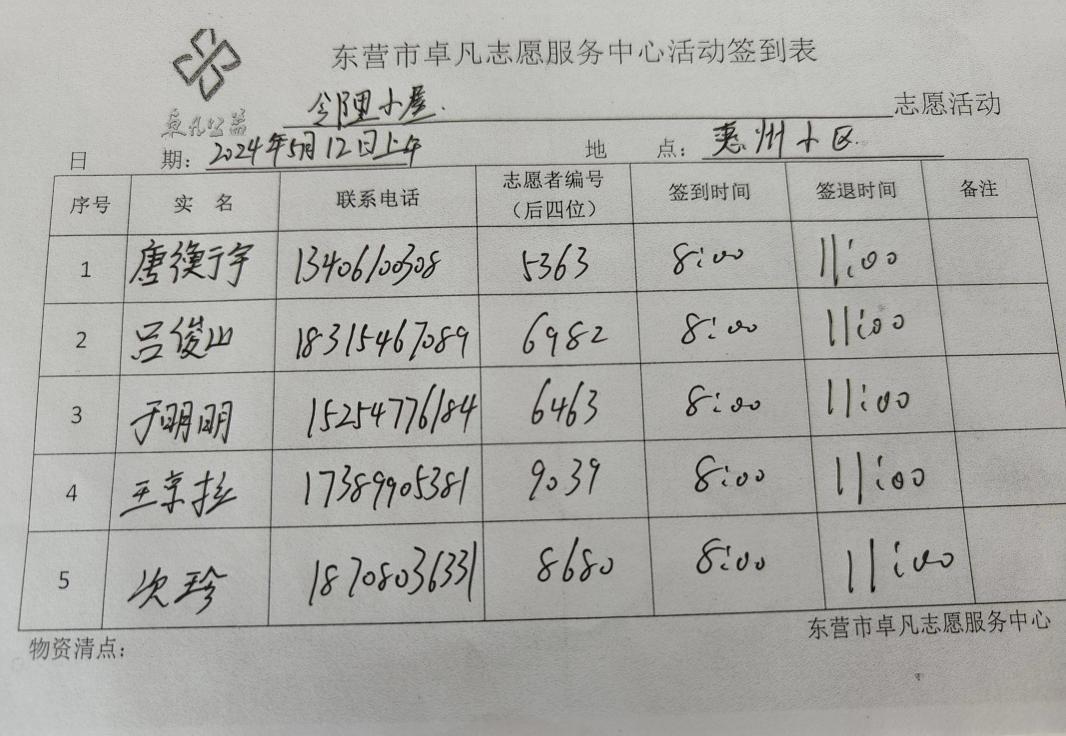 东营市卓凡志愿服务中心活动签到表
卓凡公益
邻里小屋 志愿活动
日 期：2024年5月12日上午 地 点：惠州小区
序号 实 名 联系电话 志愿者编号（后四位） 签到时间 签退时间 备注
1 唐衡于宇 13406100308 5363 8:00 11:00
2 吕俊山 18315467089 6982 8:00 11:00
3 于明明 15254776184 6463 8:00 11:00
4 王京拉 17389905381 9039 8:00 11:00
5 次珍 18708036331 8680 8:00 11:00
物资清点： 东营市卓凡志愿服务中心